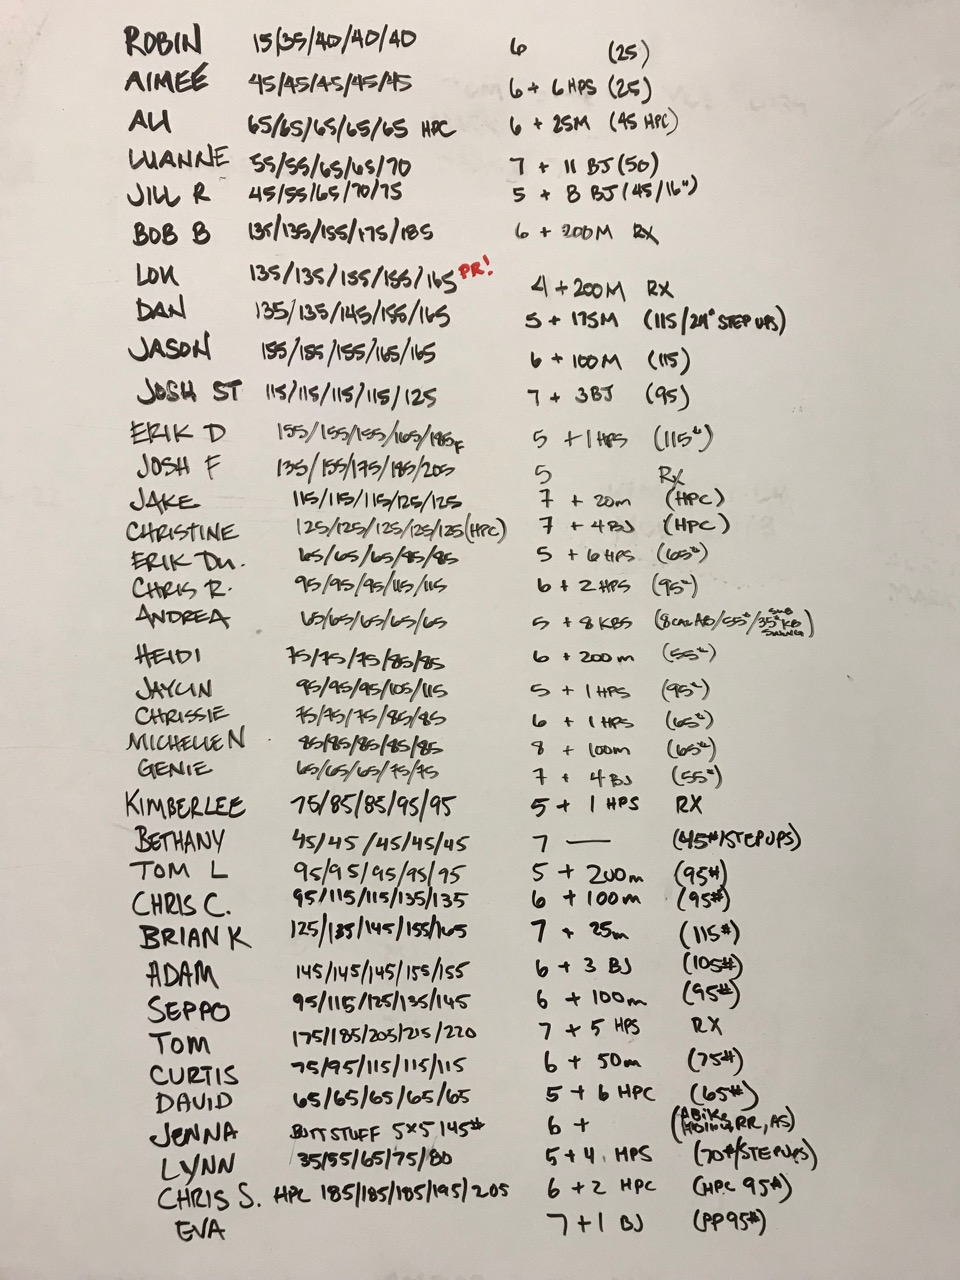 ROBIN 15/35/40/40/40 6 (25)
AIMEE 45/45/45/45/45 6 + 6 HPS (25)
ALI 65/65/65/65/65 HPC 6 + 25M (45 HPC)
LUANNE 55/55/65/65/70 7 + 11 BJ (50)
JILL R 45/55/65/70/75 5 + 8 BJ (45/16")
BOB B 135/135/155/175/185 6 + 200M RX
LOU 135/135/155/155/165 PR! 4 + 200M RX
DAN 135/135/145/155/165 5 + 175M (115/24" STEP UPS)
JASON 155/155/155/165/165 6 + 100M (115)
JOSH ST 115/115/115/115/125 7 + 3BJ (95)
ERIK D 155/155/155/165/185F 5 + 1 HPS (115#)
JOSH F 135/155/175/185/205 5 RX
JAKE 115/115/115/125/125 7 + 20m (HPC)
CHRISTINE 125/125/125/125/125 (HPC) 7 + 4BJ (HPC)
ERIK DU. 65/65/65/85/85 5 + 6 HPS (65#)
CHRIS R. 95/95/95/115/115 6 + 2 HPS (95#)
ANDREA 65/65/65/65/65 5 + 8 KBS (8 CAL AB/55#/35# KB SWINGS)
HEIDI 75/75/75/85/85 6 + 200m (55#)
JAYLIN 95/95/95/105/115 5 + 1 HPS (95#)
CHRISSIE 75/75/75/85/85 6 + 1 HPS (65#)
MICHELLE N 85/85/85/85/85 8 + 100m (65#)
GENIE 65/65/65/75/75 7 + 4 BJ (55#)
KIMBERLEE 75/85/85/95/95 5 + 1 HPS RX
BETHANY 45/45/45/45/45 7 — (45#/STEPUPS)
TOM L 95/95/95/95/95 5 + 200m (95#)
CHRIS C. 95/115/115/135/135 6 + 100m (95#)
BRIAN K 125/135/145/155/165 7 + 25m (115#)
ADAM 145/145/145/155/155 6 + 3 BJ (105#)
SEPPO 95/115/125/135/145 6 + 100m (95#)
TOM 175/185/205/215/220 7 + 5 HPS RX
CURTIS 75/95/115/115/115 6 + 50m (75#)
DAVID 65/65/65/65/65 5 + 6 HPC (65#)
JENNA BUTT STUFF 5x5 145# 6 + (ABIKE, HOLLOW, RR, AS)
LYNN 35/55/65/75/80 5 + 4 HPS (70#/STEPUPS)
CHRIS S. HPC 185/185/185/195/205 6 + 2 HPC (HPC 95#)
EVA 7 + 1 BJ (PP 95#)